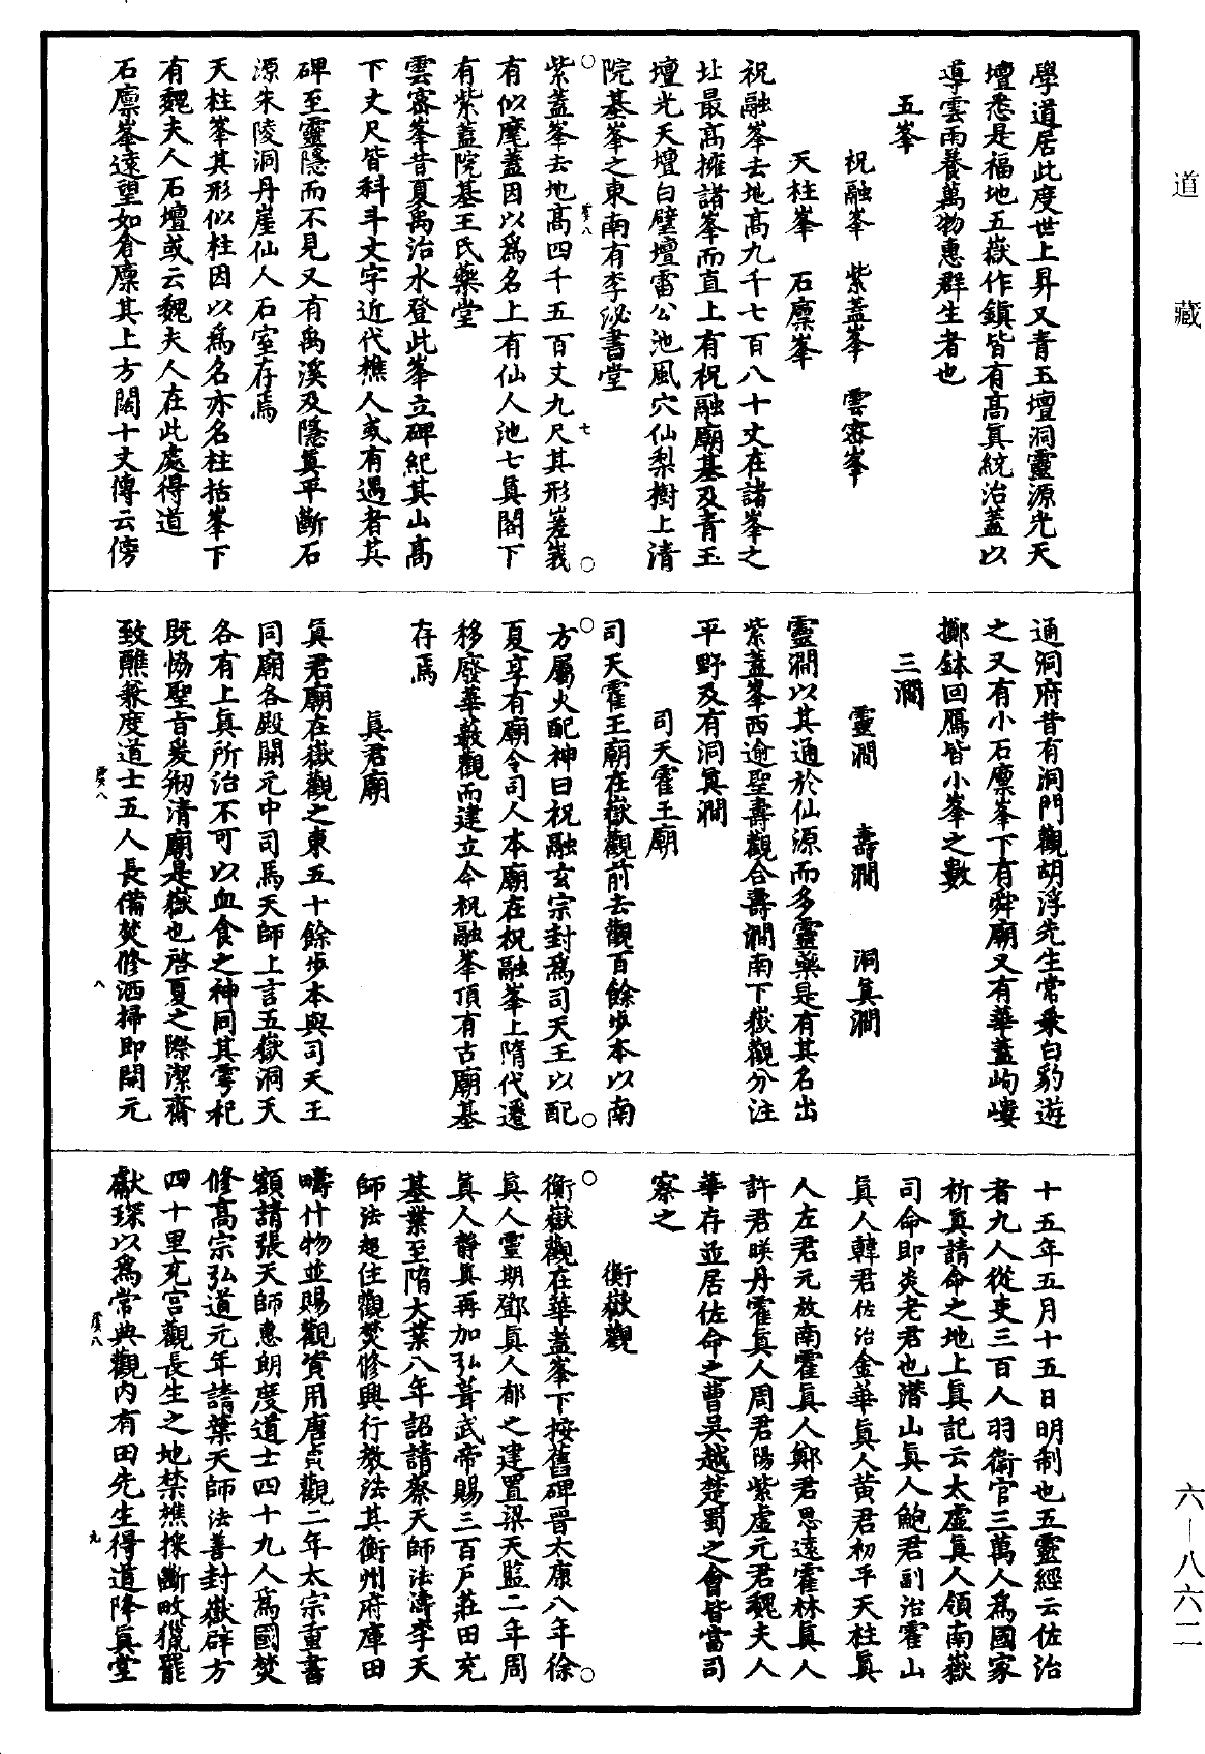 道藏
六—八六二
學道居此度世上昇又青玉壇洞靈源光天
壇悉是福地五嶽作鎮皆有高真統治蓋以
導雲雨養萬物惠群生者也
五峯
祝融峯 紫蓋峯 雲密峯
天柱峯 石廩峯
祝融峯去地高九千七百八十丈在諸峯之
址最高擁諸峯而直上有祝融廟基及青玉
壇光天壇白璧壇雷公池風穴仙梨樹上清
院基峯之東南有李泌書堂
紫蓋峯去地高四千五百丈九尺其形嵳峩
有似麾蓋因以為名上有仙人池七真閣下
有紫蓋院基王氏藥堂
雲密峯昔夏禹治水登此峯立碑紀其山高
下丈尺皆科斗文字近代樵人或有遇者其
碑至靈隱而不見又有禹溪及隱真平斷石
源朱陵洞丹崖仙人石室存焉
天柱峯其形似柱因以為名亦名柱括峯下
有魏夫人石壇或云魏夫人在此處得道
石廩峯遠望如倉廩其上方闊十丈傳云傍
虞八
七
通洞府昔有洞門觀胡浮先生常乘白豹遊
之又有小石廩峯下有舜廟又有華蓋岣嶁
擲鉢回鴈皆小峯之數
三澗
靈澗 壽澗 洞真澗
靈澗以其通於仙源而多靈藥是有其名出
紫蓋峯西逾聖壽觀合壽澗南下嶽觀分注
平野及有洞真澗
司天霍王廟
司天霍王廟在嶽觀前去觀百餘步本以南
方屬火配神曰祝融玄宗封為司天王以配
夏享有廟令司人本廟在祝融峯上隋代遷
移廢華薮觀而建立今祝融峯頂有古廟基
存焉
真君廟
真君廟在嶽觀之東五十餘步本與司天王
同廟各殿開元中司馬天師上言五嶽洞天
各有上真所治不可以血食之神同其雩杞
既恊聖旨爰剏清廟是嶽也啓夏之際潔齋
致醮兼度道士五人長備焚修洒掃即開元
虞八
八
十五年五月十五日明制也五靈經云佐治
者九人從吏三百人羽衛官三萬人為國家
祈真請命之地上真記云太虛真人領南嶽
司命即炎老君也潛山真人鮑君副治霍山
真人韓君佐治金華真人黃君初平天柱真
人左君元放南霍真人鄭君思遠霍林真人
許君暎丹霍真人周君陽紫虛元君魏夫人
華存並居佐命之曹吳越楚蜀之會皆當司
察之
衡嶽觀
衡嶽觀在華蓋峯下按舊碑晉太康八年徐
真人靈期鄧真人郁之建置梁天監二年周
真人靜真再加弘葺武帝賜三百戶莊田充
基業至隋大業八年詔請蔡天師法濤李天
師法超住觀焚修興行教法其衡州府庫田
疇什物並賜觀資用唐貞觀二年太宗重書
額請張天師惠朗度道士四十九人為國焚
修高宗弘道元年請葉天師法善封嶽辟方
四十里充宮觀長生之地禁樵採斷畋獵罷
獻琛以為常典觀內有田先生得道降真堂
虞八
九